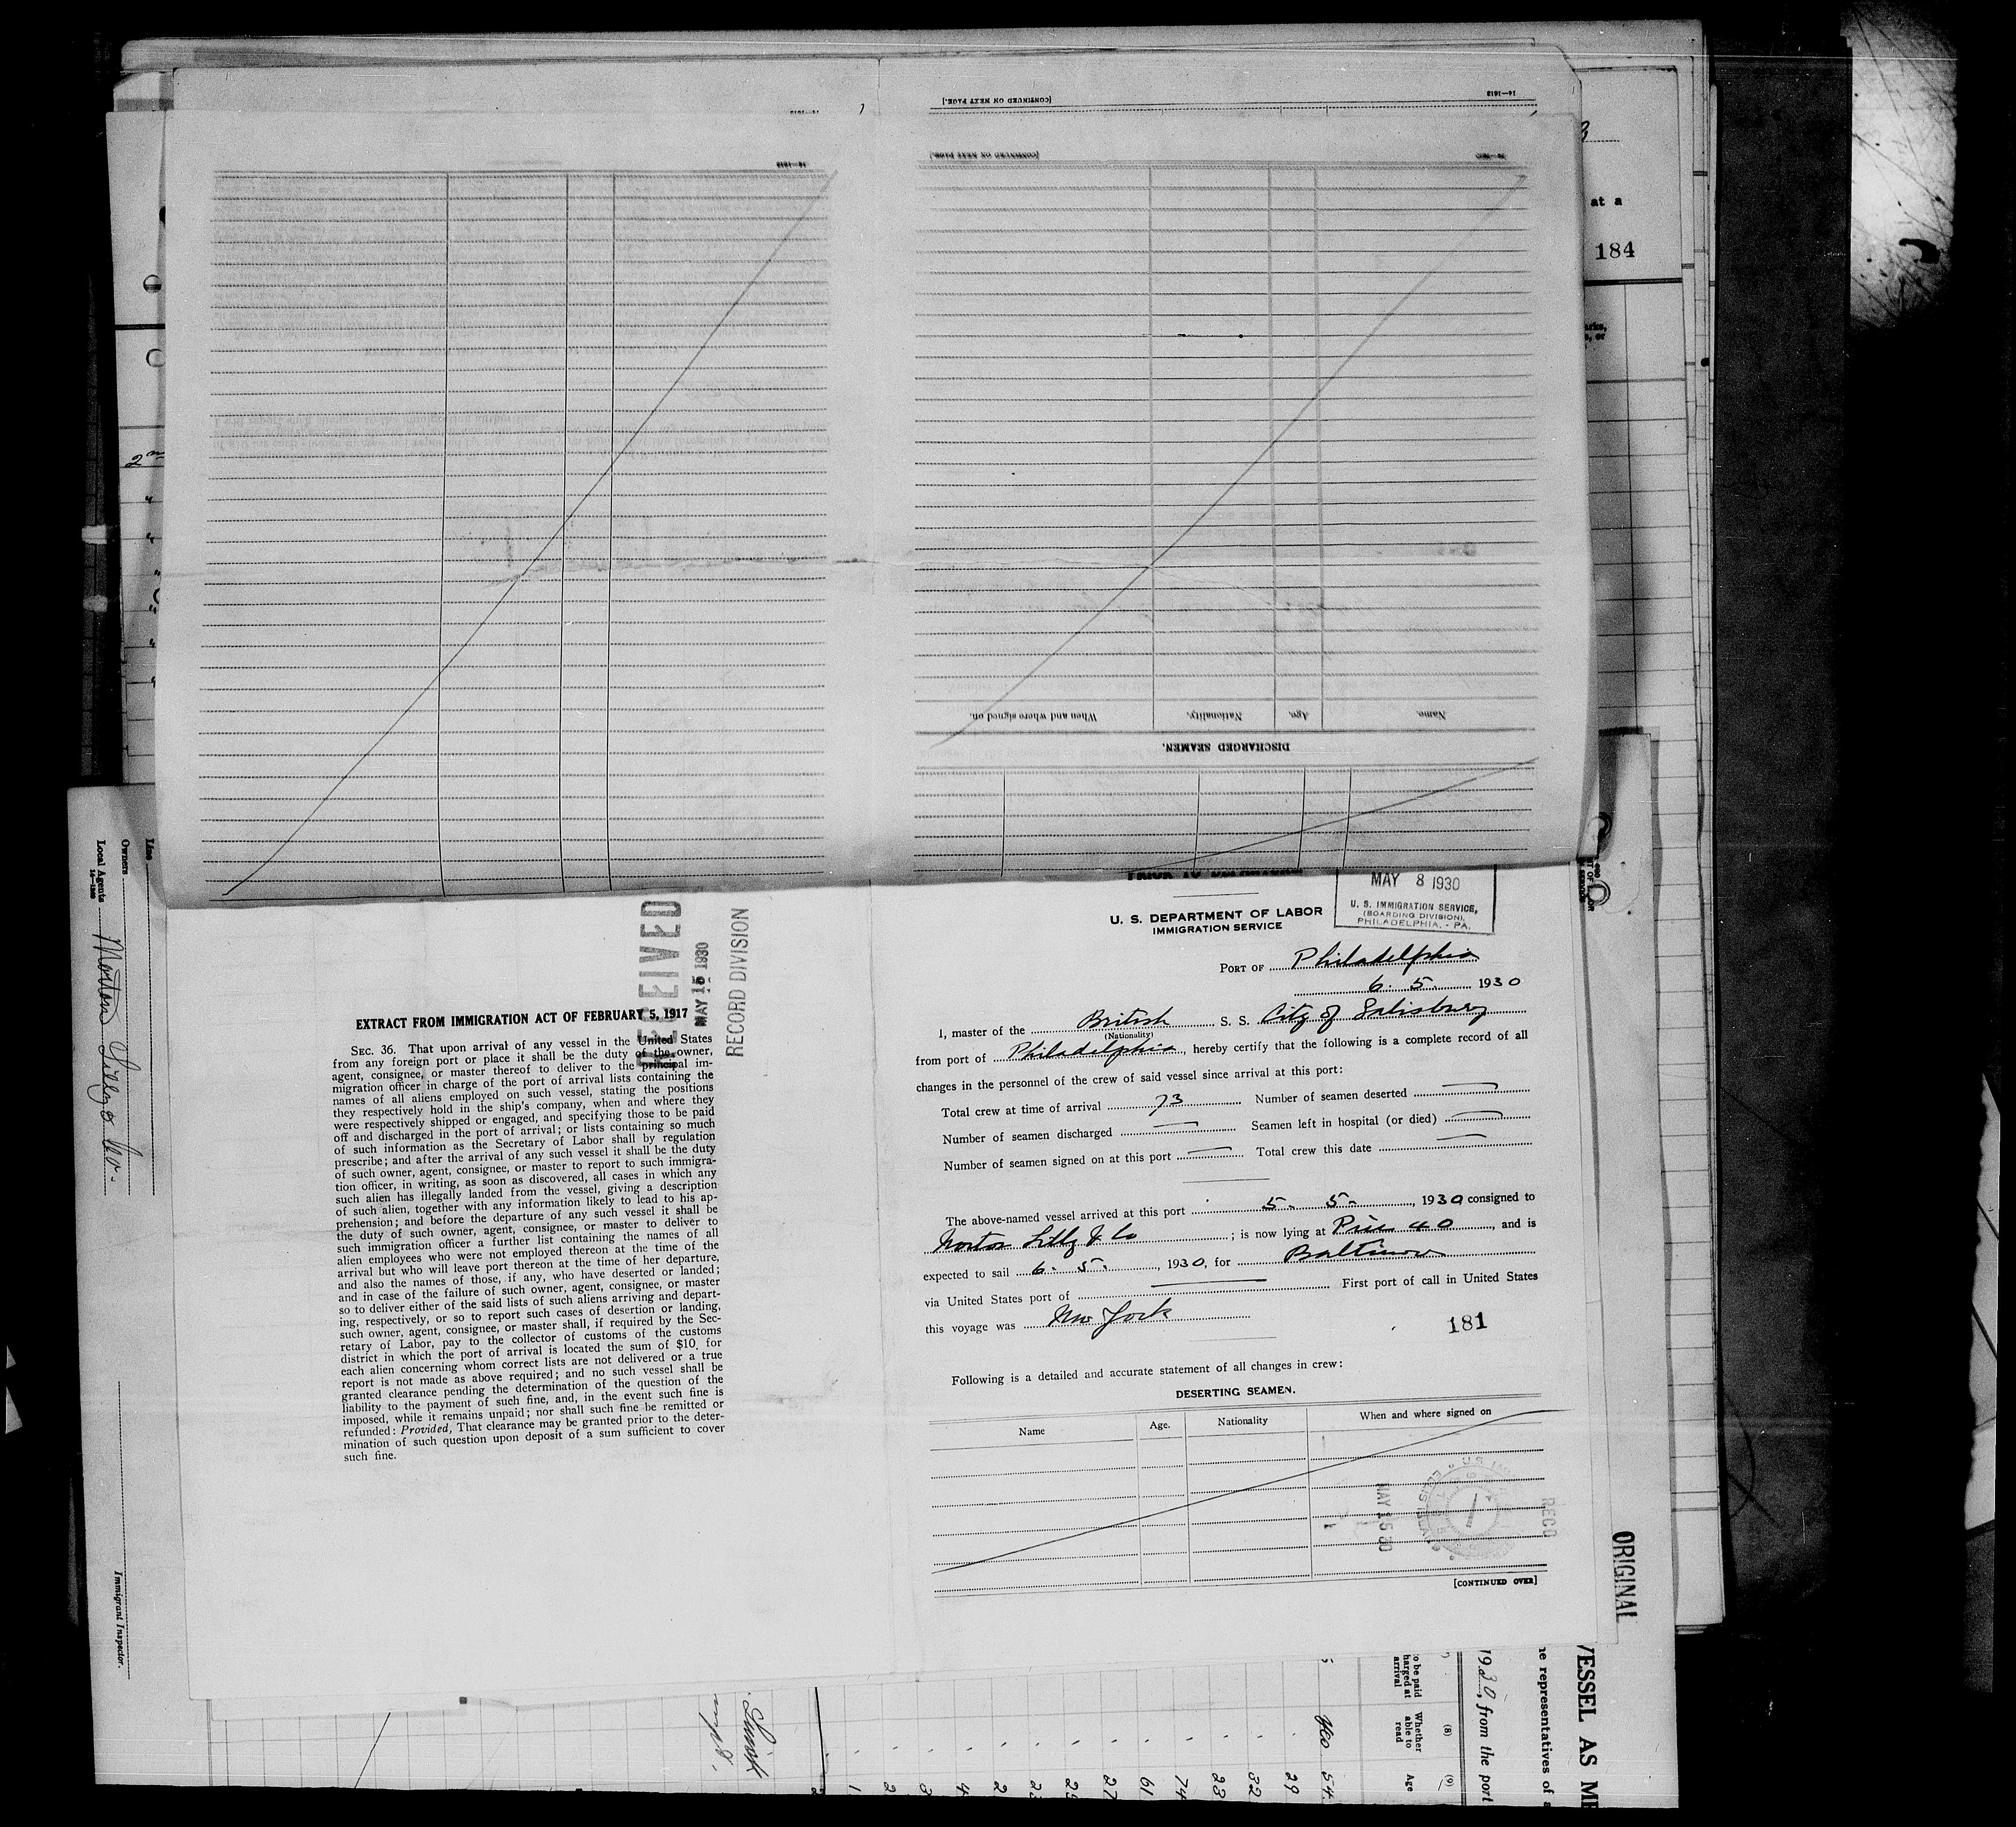 [CONTINUED ON NEXT PAGE.]
14—1613
[CONTINUED ON NEXT PAGE.]
14—1613
at a
184
2
When and where signed on.
Nationality.
Age.
Name.
DISCHARGED SEAMEN.
Line
Owners
Local Agents Norton Lilly & Co.
Immigrant Inspector.
RECEIVED
MAY 15 1930
RECORD DIVISION
EXTRACT FROM IMMIGRATION ACT OF FEBRUARY 5, 1917
SEC. 36. That upon arrival of any vessel in the United States
from any foreign port or place it shall be the duty of the owner,
agent, consignee, or master thereof to deliver to the principal im-
migration officer in charge of the port of arrival lists containing the
names of all aliens employed on such vessel, stating the positions
they respectively hold in the ship's company, when and where they
were respectively shipped or engaged, and specifying those to be paid
off and discharged in the port of arrival; or lists containing so much
of such information as the Secretary of Labor shall by regulation
prescribe; and after the arrival of any such vessel it shall be the duty
of such owner, agent, consignee, or master to report to such immigra-
tion officer, in writing, as soon as discovered, all cases in which any
such alien has illegally landed from the vessel, giving a description
of such alien, together with any information likely to lead to his ap-
prehension; and before the departure of any such vessel it shall be
the duty of such owner, agent, consignee, or master to deliver to
such immigration officer a further list containing the names of all
alien employees who were not employed thereon at the time of the
arrival but who will leave port thereon at the time of her departure,
and also the names of those, if any, who have deserted or landed;
and in case of the failure of such owner, agent, consignee, or master
so to deliver either of the said lists of such aliens arriving and depart-
ing, respectively, or so to report such cases of desertion or landing,
such owner, agent, consignee, or master shall, if required by the Sec-
retary of Labor, pay to the collector of customs of the customs
district in which the port of arrival is located the sum of $10 for
each alien concerning whom correct lists are not delivered or a true
report is not made as above required; and no such vessel shall be
granted clearance pending the determination of the question of the
liability to the payment of such fine, and, in the event such fine is
imposed, while it remains unpaid; nor shall such fine be remitted or
refunded: Provided, That clearance may be granted prior to the deter-
mination of such question upon deposit of a sum sufficient to cover
such fine.
MAY 8 1930
U. S. IMMIGRATION SERVICE,
(BOARDING DIVISION),
PHILADELPHIA, - PA.
U. S. DEPARTMENT OF LABOR
IMMIGRATION SERVICE
PORT OF Philadelphia
6. 5. 1930
I, master of the British S. S. City of Salisbury
(Nationality)
from port of Philadelphia, hereby certify that the following is a complete record of all
changes in the personnel of the crew of said vessel since arrival at this port:
Total crew at time of arrival 73 Number of seamen deserted
Number of seamen discharged Seamen left in hospital (or died)
Number of seamen signed on at this port Total crew this date
The above-named vessel arrived at this port 5. 5. , 1930 consigned to
Norton Lilly & Co ; is now lying at Pier 40, and is
expected to sail 6. 5. , 1930, for Baltimore
via United States port of First port of call in United States
this voyage was New York
181
Following is a detailed and accurate statement of all changes in crew:
DESERTING SEAMEN.
Name Age. Nationality When and where signed on
MAY 15 30
RECD
[CONTINUED OVER]
ORIGINAL
VESSEL AS
representatives of
1930, from the port
(8)
(9)
Whether able to read
Age
yes 54
29
32
23
74
61
27